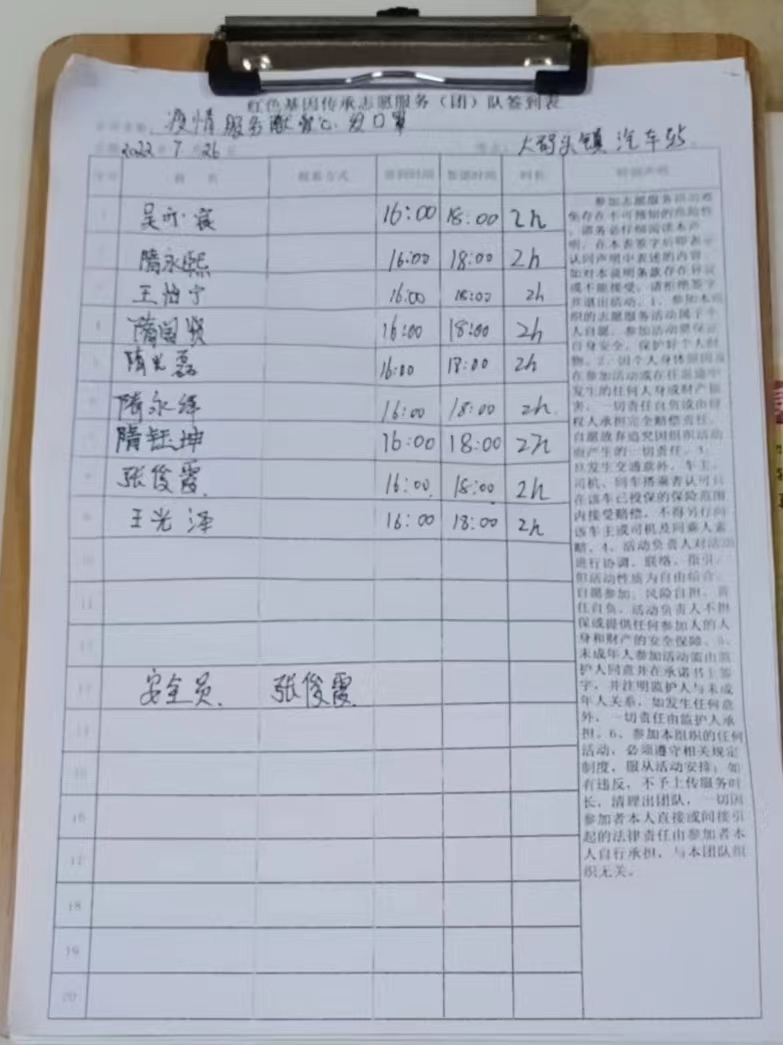 红色基因传承志愿服务（团）队签到表
疫情服务献爱心 口罩
2022年7月26日 大码头镇 汽车站
序号 姓名 联系方式 签到时间 签退时间 时长 特别声明
1 吴 16:00 18:00 2h
2 隋永熙 16:00 18:00 2h
3 王怡宁 16:00 18:00 2h
4 隋国贤 16:00 18:00 2h
5 隋光磊 16:00 18:00 2h
6 隋永 16:00 18:00 2h
7 隋钰坤 16:00 18:00 2h
8 张俊霞 16:00 18:00 2h
9 王光泽 16:00 18:00 2h
10
11
12
13 安全员 张俊霞
14
15
16
17
18
19
20
参加志愿服务活动难
免存在不可预知的危险性
，请务必仔细阅读本声
明，在本表签字后即表示
认同声明中表述的内容。
如对本说明条款存在异议
或不能接受，请拒绝签字
并退出活动。1、参加本组
织的志愿服务活动属于个
人自愿，参加活动要保证
自身安全，保护好个人财
物。2、因个人身体原因及
在参加活动或在往返途中
发生的任何人身或财产损
害，一切责任自负或由侵
权人承担完全赔偿责任，
自愿放弃追究因组织活动
而产生的一切责任。3、
旦发生交通意外，车主、
司机、同车搭乘者认可只
在该车已投保的保险范围
内接受赔偿，不得另行向
该车主或司机及同乘人索
赔。4、活动负责人对活动
进行协调、联络、指引，
但活动性质为自由结合、
自愿参加、风险自担、责
任自负，活动负责人不担
保或提供任何参加人的人
身和财产的安全保障。5、
未成年人参加活动需由监
护人同意并在承诺书上签
字，并注明监护人与未成
年人关系，如发生任何意
外，一切责任由监护人承
担。6、参加本组织的任何
活动，必须遵守相关规定
制度，服从活动安排；如
有违反，不予上传服务时
长，清理出团队，一切因
参加者本人直接或间接引
起的法律责任由参加者本
人自行承担，与本团队组
织无关。